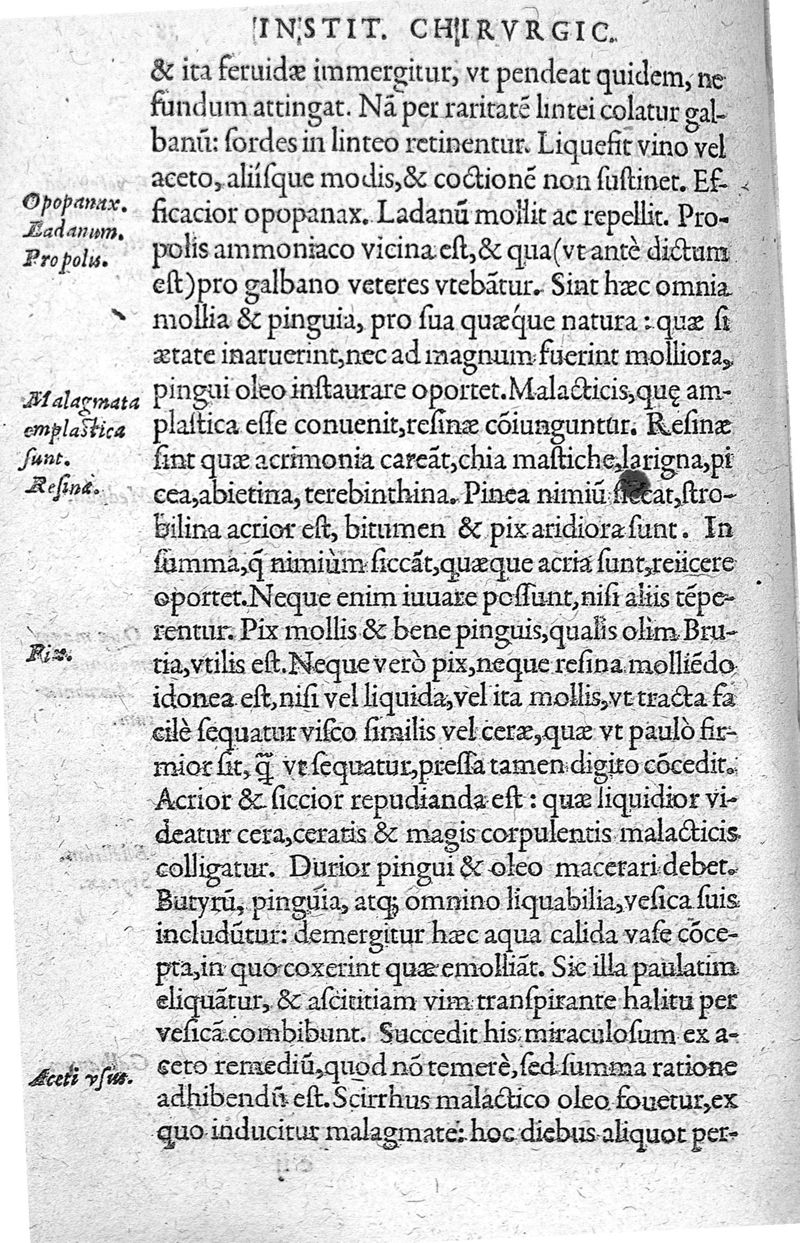 INSTIT. CHIRVRGIC.
& ita feruidæ immergitur, vt pendeat quidem, ne
fundum attingat. Nã per raritatẽ lintei colatur gal-
banũ: sordes in linteo retinentur. Liquefit vino vel
aceto, aliísque modis, & coctionẽ non sustinet. Ef-
Opopanax.
ficacior opopanax. Ladanũ mollit ac repellit. Pro-
Ladanum.
polis ammoniaco vicina est, & qua (vt antè dictum
Propolis.
est) pro galbano veteres vtebãtur. Sint hæc omnia
mollia & pinguia, pro sua quæq́ue natura: quæ si
ætate inaruerint, nec ad magnum fuerint molliora,
pingui oleo instaurare oportet. Malacticis, quę am-
Malagmata
plastica esse conuenit, resinæ cõiunguntur. Resinæ
emplastica
sint quæ acrimonia careãt, chia mastiche, larigna, pi
sunt.
Resinæ.
cea, abietina, terebinthina. Pinea nimiũ siccat, stro-
bilina acrior est, bitumen & pix aridiora sunt. In
summa, q̃ nimiùm siccãt, quæque acria sunt, reiicere
oportet. Neque enim iuuare possunt, nisi aliis tẽpe-
rentur. Pix mollis & bene pinguis, qualis olim Bru-
Pix.
tia, vtilis est. Neque verò pix, neque resina molliẽdo
idonea est, nisi vel liquida, vel ita mollis, vt tracta fa
cilè sequatur visco similis vel ceræ, quæ vt paulò fir-
mior sit, q̃ vt sequatur, pressa tamen digito cõcedit.
Acrior & siccior repudianda est: quæ liquidior vi-
deatur cera, ceratis & magis corpulentis malacticis
colligatur. Durior pingui & oleo macerari debet.
Butyrũ, pinguia, atq; omnino liquabilia, vesica suis
includũtur: demergitur hæc aqua calida vase cõce-
pta, in quo coxerint quæ emolliãt. Sic illa paulatim
eliquãtur, & ascititiam vim transpirante halitu per
vesicã combibunt. Succedit his miraculosum ex a-
Aceti vsus.
ceto remediũ, quod nõ temerè, sed summa ratione
adhibendũ est. Scirrhus malactico oleo fouetur, ex
quo inducitur malagmate: hoc diebus aliquot per-